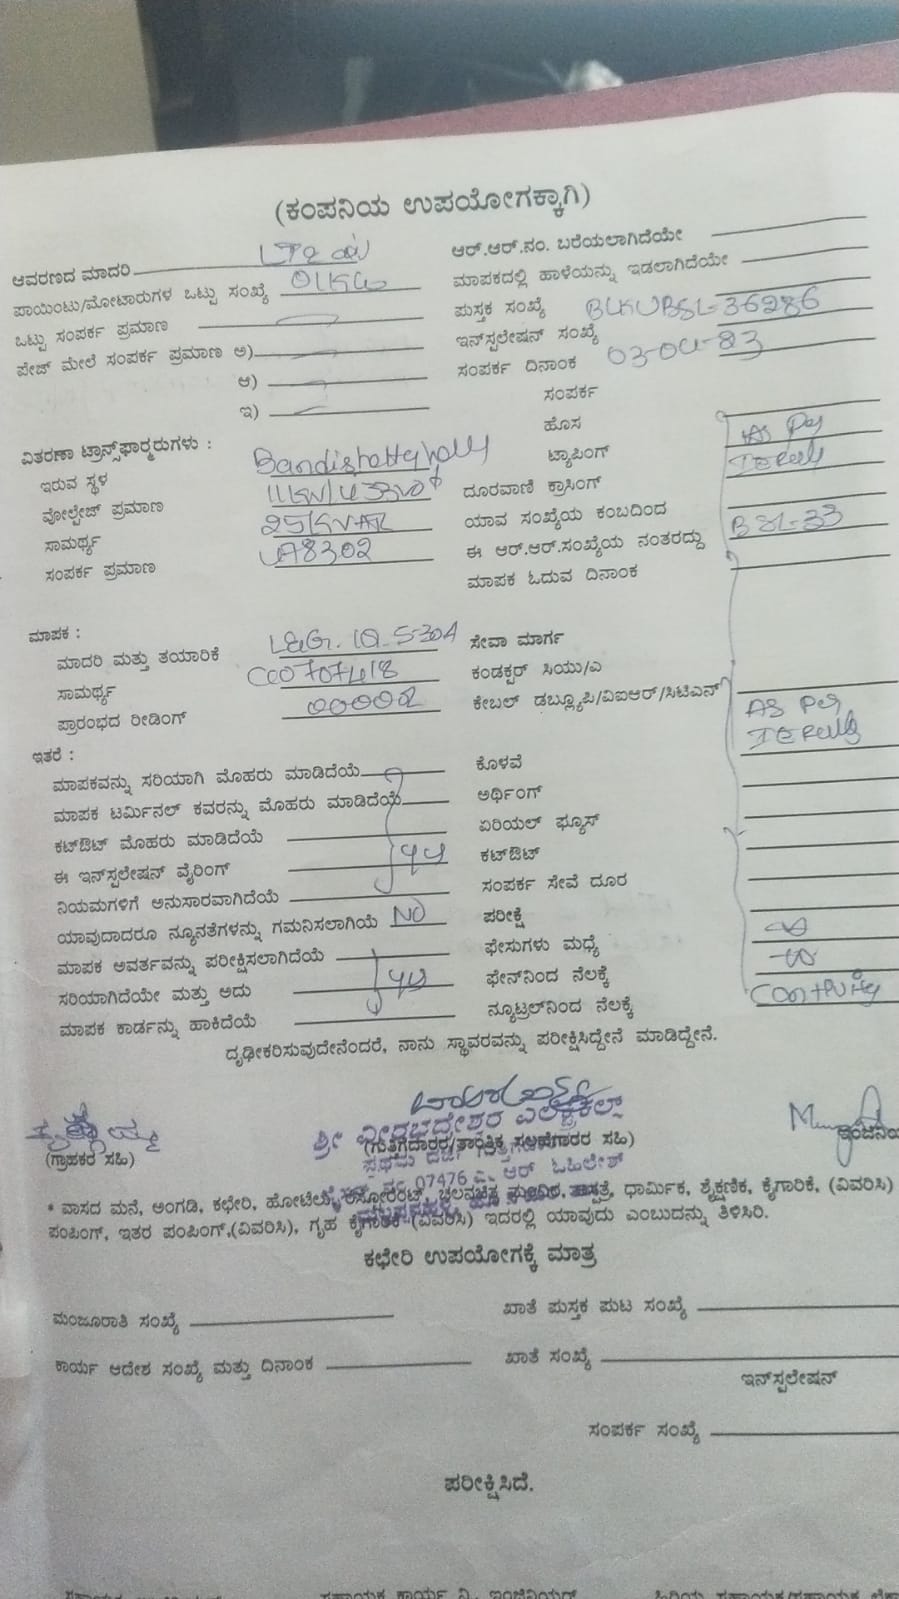 (ಕಂಪನಿಯ ಉಪಯೋಗಕ್ಕಾಗಿ)
ಆವರಣದ ಮಾದರಿ
ಪಾಯಿಂಟು/ಮೋಟಾರುಗಳ ಒಟ್ಟು ಸಂಖ್ಯೆ
ಒಟ್ಟು ಸಂಪರ್ಕ ಪ್ರಮಾಣ
ಪೇಜ್ ಮೇಲೆ ಸಂಪರ್ಕ ಪ್ರಮಾಣ ಅ)
ಆ)
ಇ)
ಆರ್.ಆರ್.ನಂ. ಬರೆಯಲಾಗಿದೆಯೇ
ಮಾಪಕದಲ್ಲಿ ಹಾಳೆಯನ್ನು ಇಡಲಾಗಿದೆಯೇ
ಪುಸ್ತಕ ಸಂಖ್ಯೆ
ಇನ್‌ಸ್ಪಲೇಷನ್ ಸಂಖ್ಯೆ BLKUBSL-36286
ಸಂಪರ್ಕ ದಿನಾಂಕ 03-04-23
ಸಂಪರ್ಕ
ಹೊಸ
ಟ್ಯಾಪಿಂಗ್ As Per
ದೂರವಾಣಿ ಕ್ರಾಸಿಂಗ್
ಯಾವ ಸಂಖ್ಯೆಯ ಕಂಬದಿಂದ
ಈ ಆರ್.ಆರ್.ಸಂಖ್ಯೆಯ ನಂತರದ್ದು BSL-33
ಮಾಪಕ ಓದುವ ದಿನಾಂಕ
ವಿತರಣಾ ಟ್ರಾನ್ಸ್‌ಫಾರ್‍ಮರುಗಳು :
ಇರುವ ಸ್ಥಳ Bandishettyhally
ವೋಲ್ಟೇಜ್ ಪ್ರಮಾಣ
ಸಾಮರ್ಥ್ಯ 25KVAR
ಸಂಪರ್ಕ ಪ್ರಮಾಣ
ಮಾಪಕ :
ಮಾದರಿ ಮತ್ತು ತಯಾರಿಕೆ L&G. 1Q. 5-30A
ಸಾಮರ್ಥ್ಯ
ಪ್ರಾರಂಭದ ರೀಡಿಂಗ್
ಸೇವಾ ಮಾರ್ಗ
ಕಂಡಕ್ಟರ್ ಸಿಯು/ಎ
ಕೇಬಲ್ ಡಬ್ಲ್ಯೂಪಿ/ವಿಐಆರ್/ಸಿಟಿಎನ್ As Per
ಇತರೆ :
ಮಾಪಕವನ್ನು ಸರಿಯಾಗಿ ಮೊಹರು ಮಾಡಿದೆಯೆ
ಮಾಪಕ ಟರ್ಮಿನಲ್ ಕವರನ್ನು ಮೊಹರು ಮಾಡಿದೆಯೆ
ಕಟ್‌ಔಟ್ ಮೊಹರು ಮಾಡಿದೆಯೆ
ಈ ಇನ್‌ಸ್ಪಲೇಷನ್ ವೈರಿಂಗ್
ನಿಯಮಗಳಿಗೆ ಅನುಸಾರವಾಗಿದೆಯೆ
ಯಾವುದಾದರೂ ನ್ಯೂನತೆಗಳನ್ನು ಗಮನಿಸಲಾಗಿಯೆ NO
ಮಾಪಕ ಅವರ್ತವನ್ನು ಪರೀಕ್ಷಿಸಲಾಗಿದೆಯೆ
ಸರಿಯಾಗಿದೆಯೇ ಮತ್ತು ಅದು
ಮಾಪಕ ಕಾರ್ಡನ್ನು ಹಾಕಿದೆಯೆ
ಕೊಳವೆ
ಅರ್ಥಿಂಗ್
ಏರಿಯಲ್ ಫ್ಯೂಸ್
ಕಟ್‌ಔಟ್
ಸಂಪರ್ಕ ಸೇವೆ ದೂರ
ಪರೀಕ್ಷೆ
ಫೇಸುಗಳು ಮಧ್ಯೆ
ಫೇಸ್‌ನಿಂದ ನೆಲಕ್ಕೆ
ನ್ಯೂಟ್ರಲ್‌ನಿಂದ ನೆಲಕ್ಕೆ
ದೃಢೀಕರಿಸುವುದೇನೆಂದರೆ, ನಾನು ಸ್ಥಾವರವನ್ನು ಪರೀಕ್ಷಿಸಿದ್ದೇನೆ ಮಾಡಿದ್ದೇನೆ.
ಶ್ರೀ ವೀರಭದ್ರೇಶ್ವರ ಎಲೆಕ್ಟ್ರಿಕಲ್ಸ್
(ಗ್ರಾಹಕರ ಸಹಿ)
(ಗುತ್ತಿಗೆದಾರರ/ತಾಂತ್ರಿಕ ಸಲಹೆಗಾರರ ಸಹಿ)
07476
* ವಾಸದ ಮನೆ, ಅಂಗಡಿ, ಕಛೇರಿ, ಹೋಟೆಲು, ರೆಸ್ಟೋರೆಂಟ್, ಚಲನಚಿತ್ರ ಮಂದಿರ, ಧಾರ್ಮಿಕ, ಶೈಕ್ಷಣಿಕ, ಕೈಗಾರಿಕೆ, (ವಿವರಿಸಿ)
ಪಂಪಿಂಗ್, ಇತರ ಪಂಪಿಂಗ್,(ವಿವರಿಸಿ), ಗೃಹ ಕೈಗಾರಿಕೆ (ವಿವರಿಸಿ) ಇದರಲ್ಲಿ ಯಾವುದು ಎಂಬುದನ್ನು ತಿಳಿಸಿರಿ.
ಕಛೇರಿ ಉಪಯೋಗಕ್ಕೆ ಮಾತ್ರ
ಮಂಜೂರಾತಿ ಸಂಖ್ಯೆ
ಖಾತೆ ಪುಸ್ತಕ ಪುಟ ಸಂಖ್ಯೆ
ಕಾರ್ಯ ಆದೇಶ ಸಂಖ್ಯೆ ಮತ್ತು ದಿನಾಂಕ
ಖಾತೆ ಸಂಖ್ಯೆ
ಇನ್‌ಸ್ಪಲೇಷನ್
ಸಂಪರ್ಕ ಸಂಖ್ಯೆ
ಪರೀಕ್ಷಿಸಿದೆ.